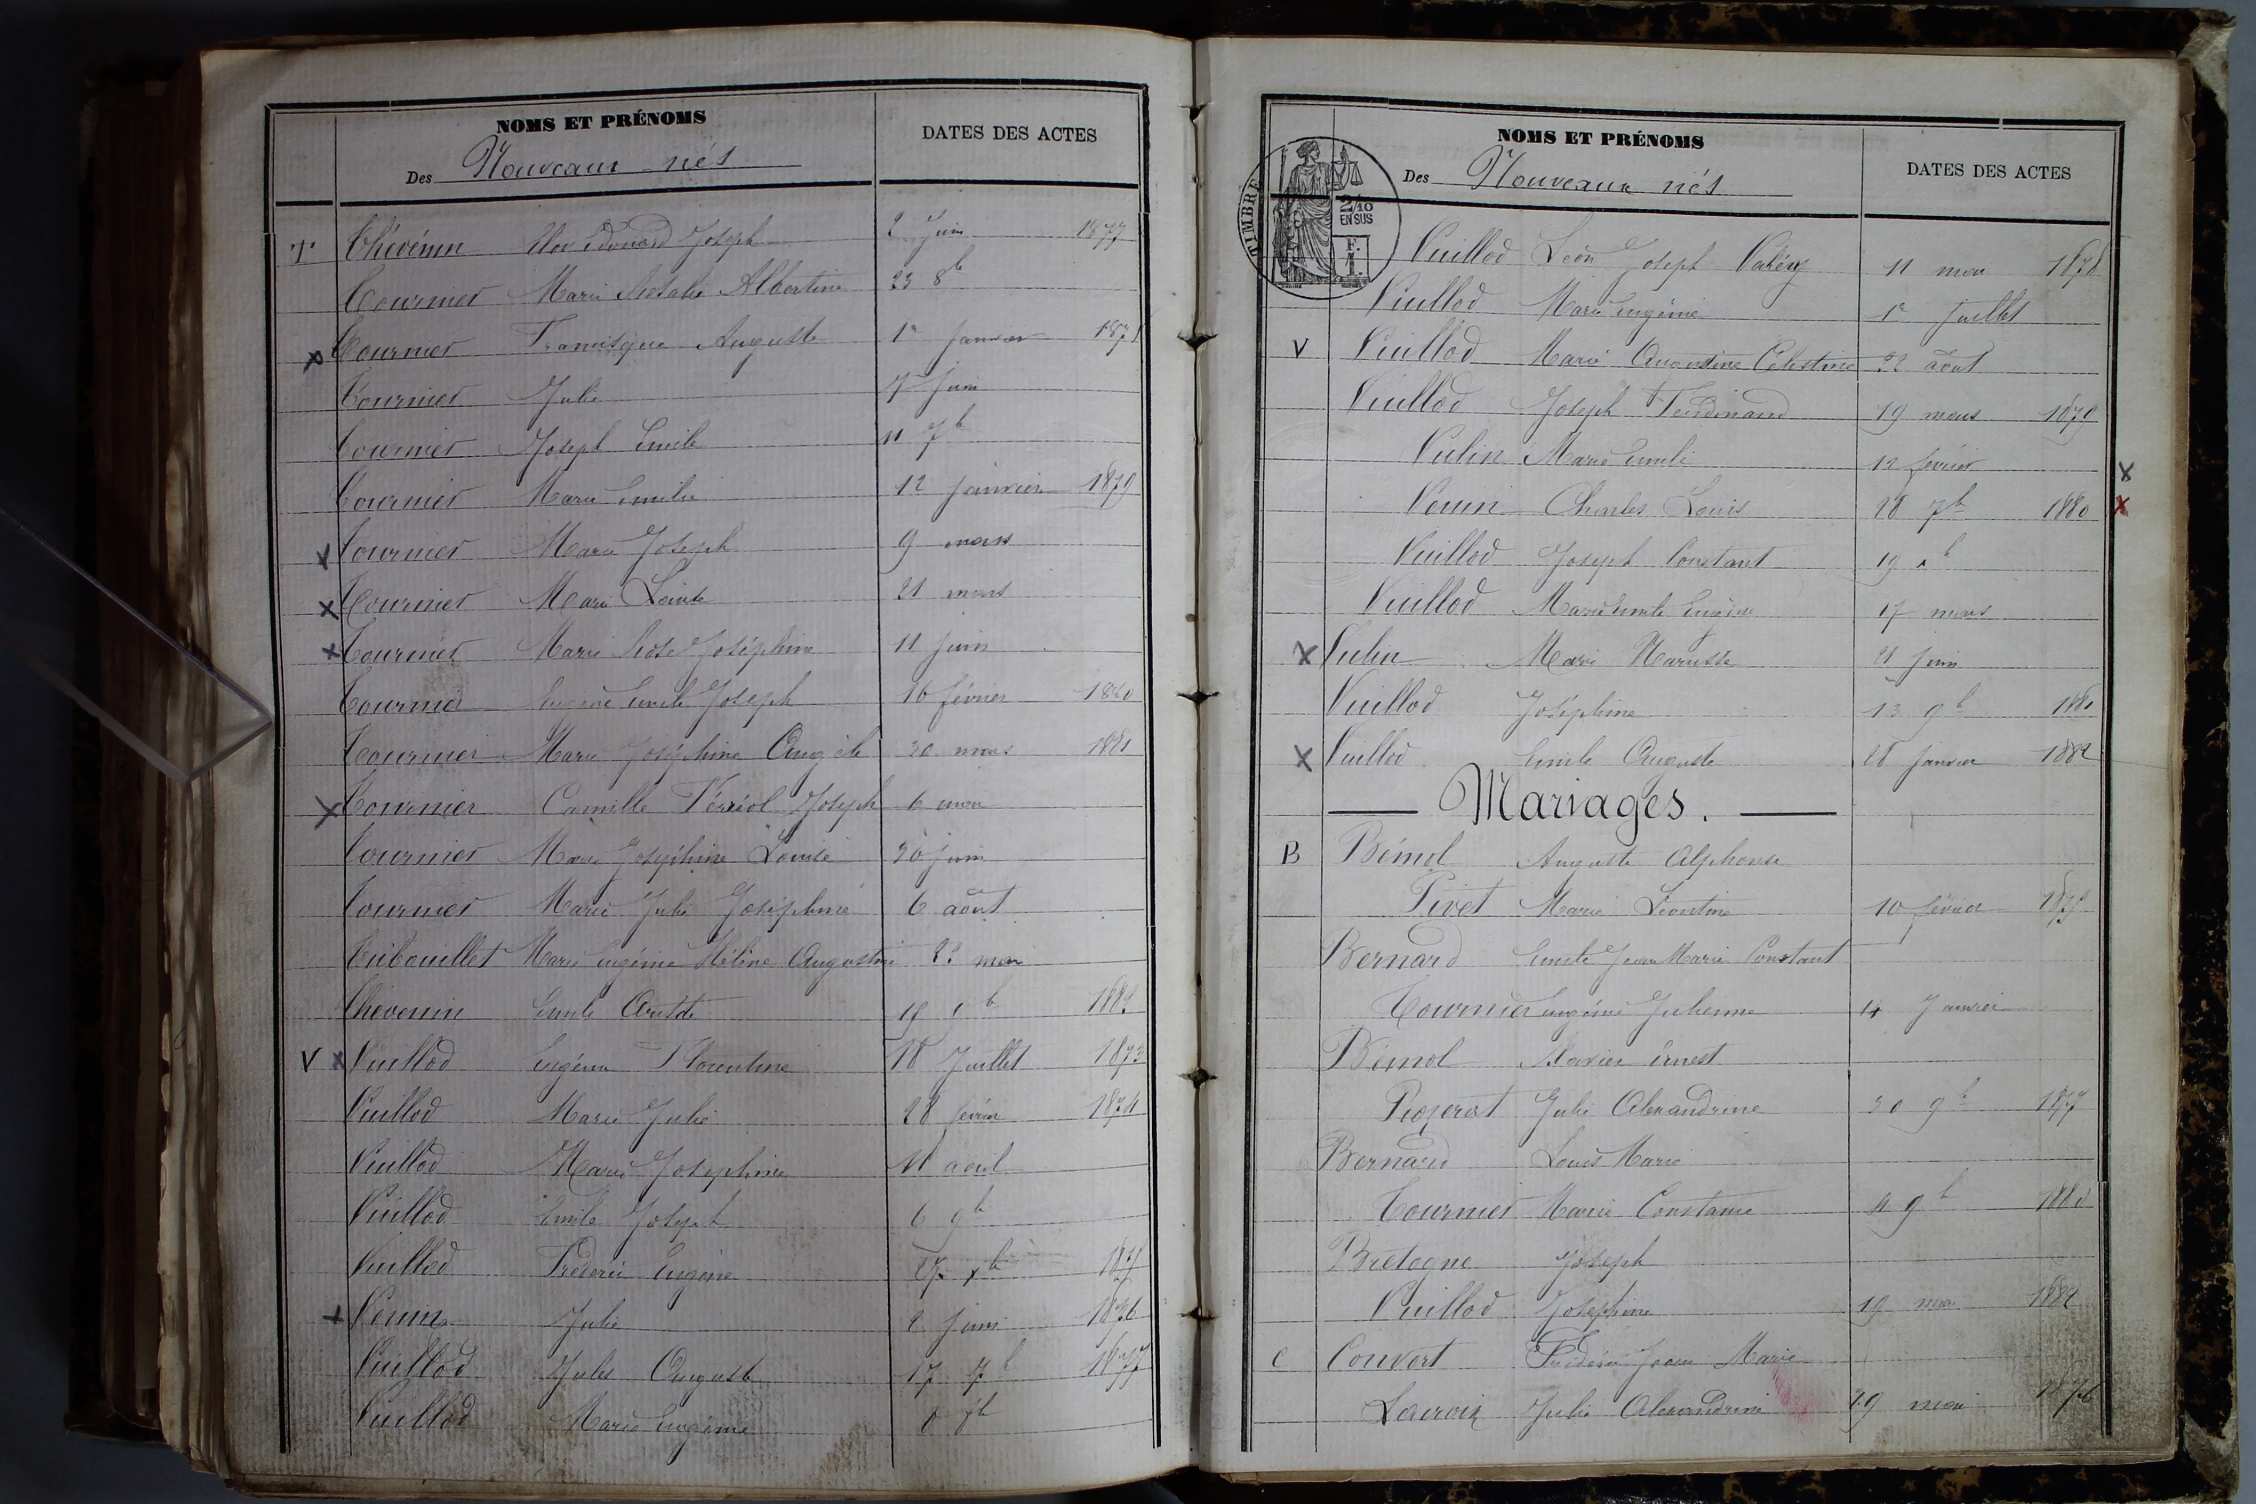 NOMS ET PRÉNOMS
Des Nouveaux nés
DATES DES ACTES
T Thévenin Édouard Joseph 2 Juin 1877
Tournier Marie Albertine 23 8b
x Tournier Francisque Auguste 1er Janvier 1878
Tournier Julie 7 Juin
Tournier Joseph Emile 11 7b
Tournier Marie Emilie 12 janvier 1879
x Tournier Marie Joseph 9 mars
x Tournier Marie 21 mars
x Tournier Marie Rose Joséphine 11 Juin
Tournier Eugène Emile Joseph 16 février 1880
Tournier Marie Joséphine Angèle 30 mars 1881
x Tournier Camille Joseph 6 mai
Tournier Marie Joséphine Louise 30 juin
Tournier Marie Julie Joséphine 6 août
Marie Eugénie Hélène Augustine mai
Thevenin Emile 19 1882
V x Vuillod Florentine 18 Juillet 1873
Vuillod Marie Julie 28 février 1874
Vuillod Marie Joséphine 11 avril
Vuillod Emile Joseph 6 9b
Vuillod Frédéric Eugène 27 1875
x Julie 2 Juin 1876
Vuillod Jules Auguste 17 7b 1877
Vuillod Marie Eugénie 8
TIMBRE
2/10
EN SUS
F.
1.
NOMS ET PRÉNOMS
Des Nouveaux nés
DATES DES ACTES
Vuillod Léon Joseph Valéry 11 mai 1878
Vuillod Marie Eugénie 1er Juillet
V Vuillod Marie Célestine 22 août
Vuillod Joseph Ferdinand 19 mars 1879
Marie 12 février x
Charles Louis 28 7b 1880 x
Vuillod Joseph Constant 19
Vuillod Marie 17 mars
x Marie 21 juin
Vuillod Joséphine 13 9b 1881
x Vuillod Emile Auguste 28 janvier 1882
Mariages.
B Bémol Auguste Alphonse
Pivet Marie Léontine 10 février 1875
Bernard Emile Jean Marie Constant
Tournier Eugénie Julienne 14 Janvier
Bémol Xavier Ernest
Julie Alexandrine 30 9b 1877
Bernard Louis Marie
Tournier Marie Constance 9b 1880
Bretogne Joseph
Vuillod Joséphine 19 mai 1882
C Convert Frédéric Jean Marie
Lacroix Julie Alexandrine 29 mai 1876